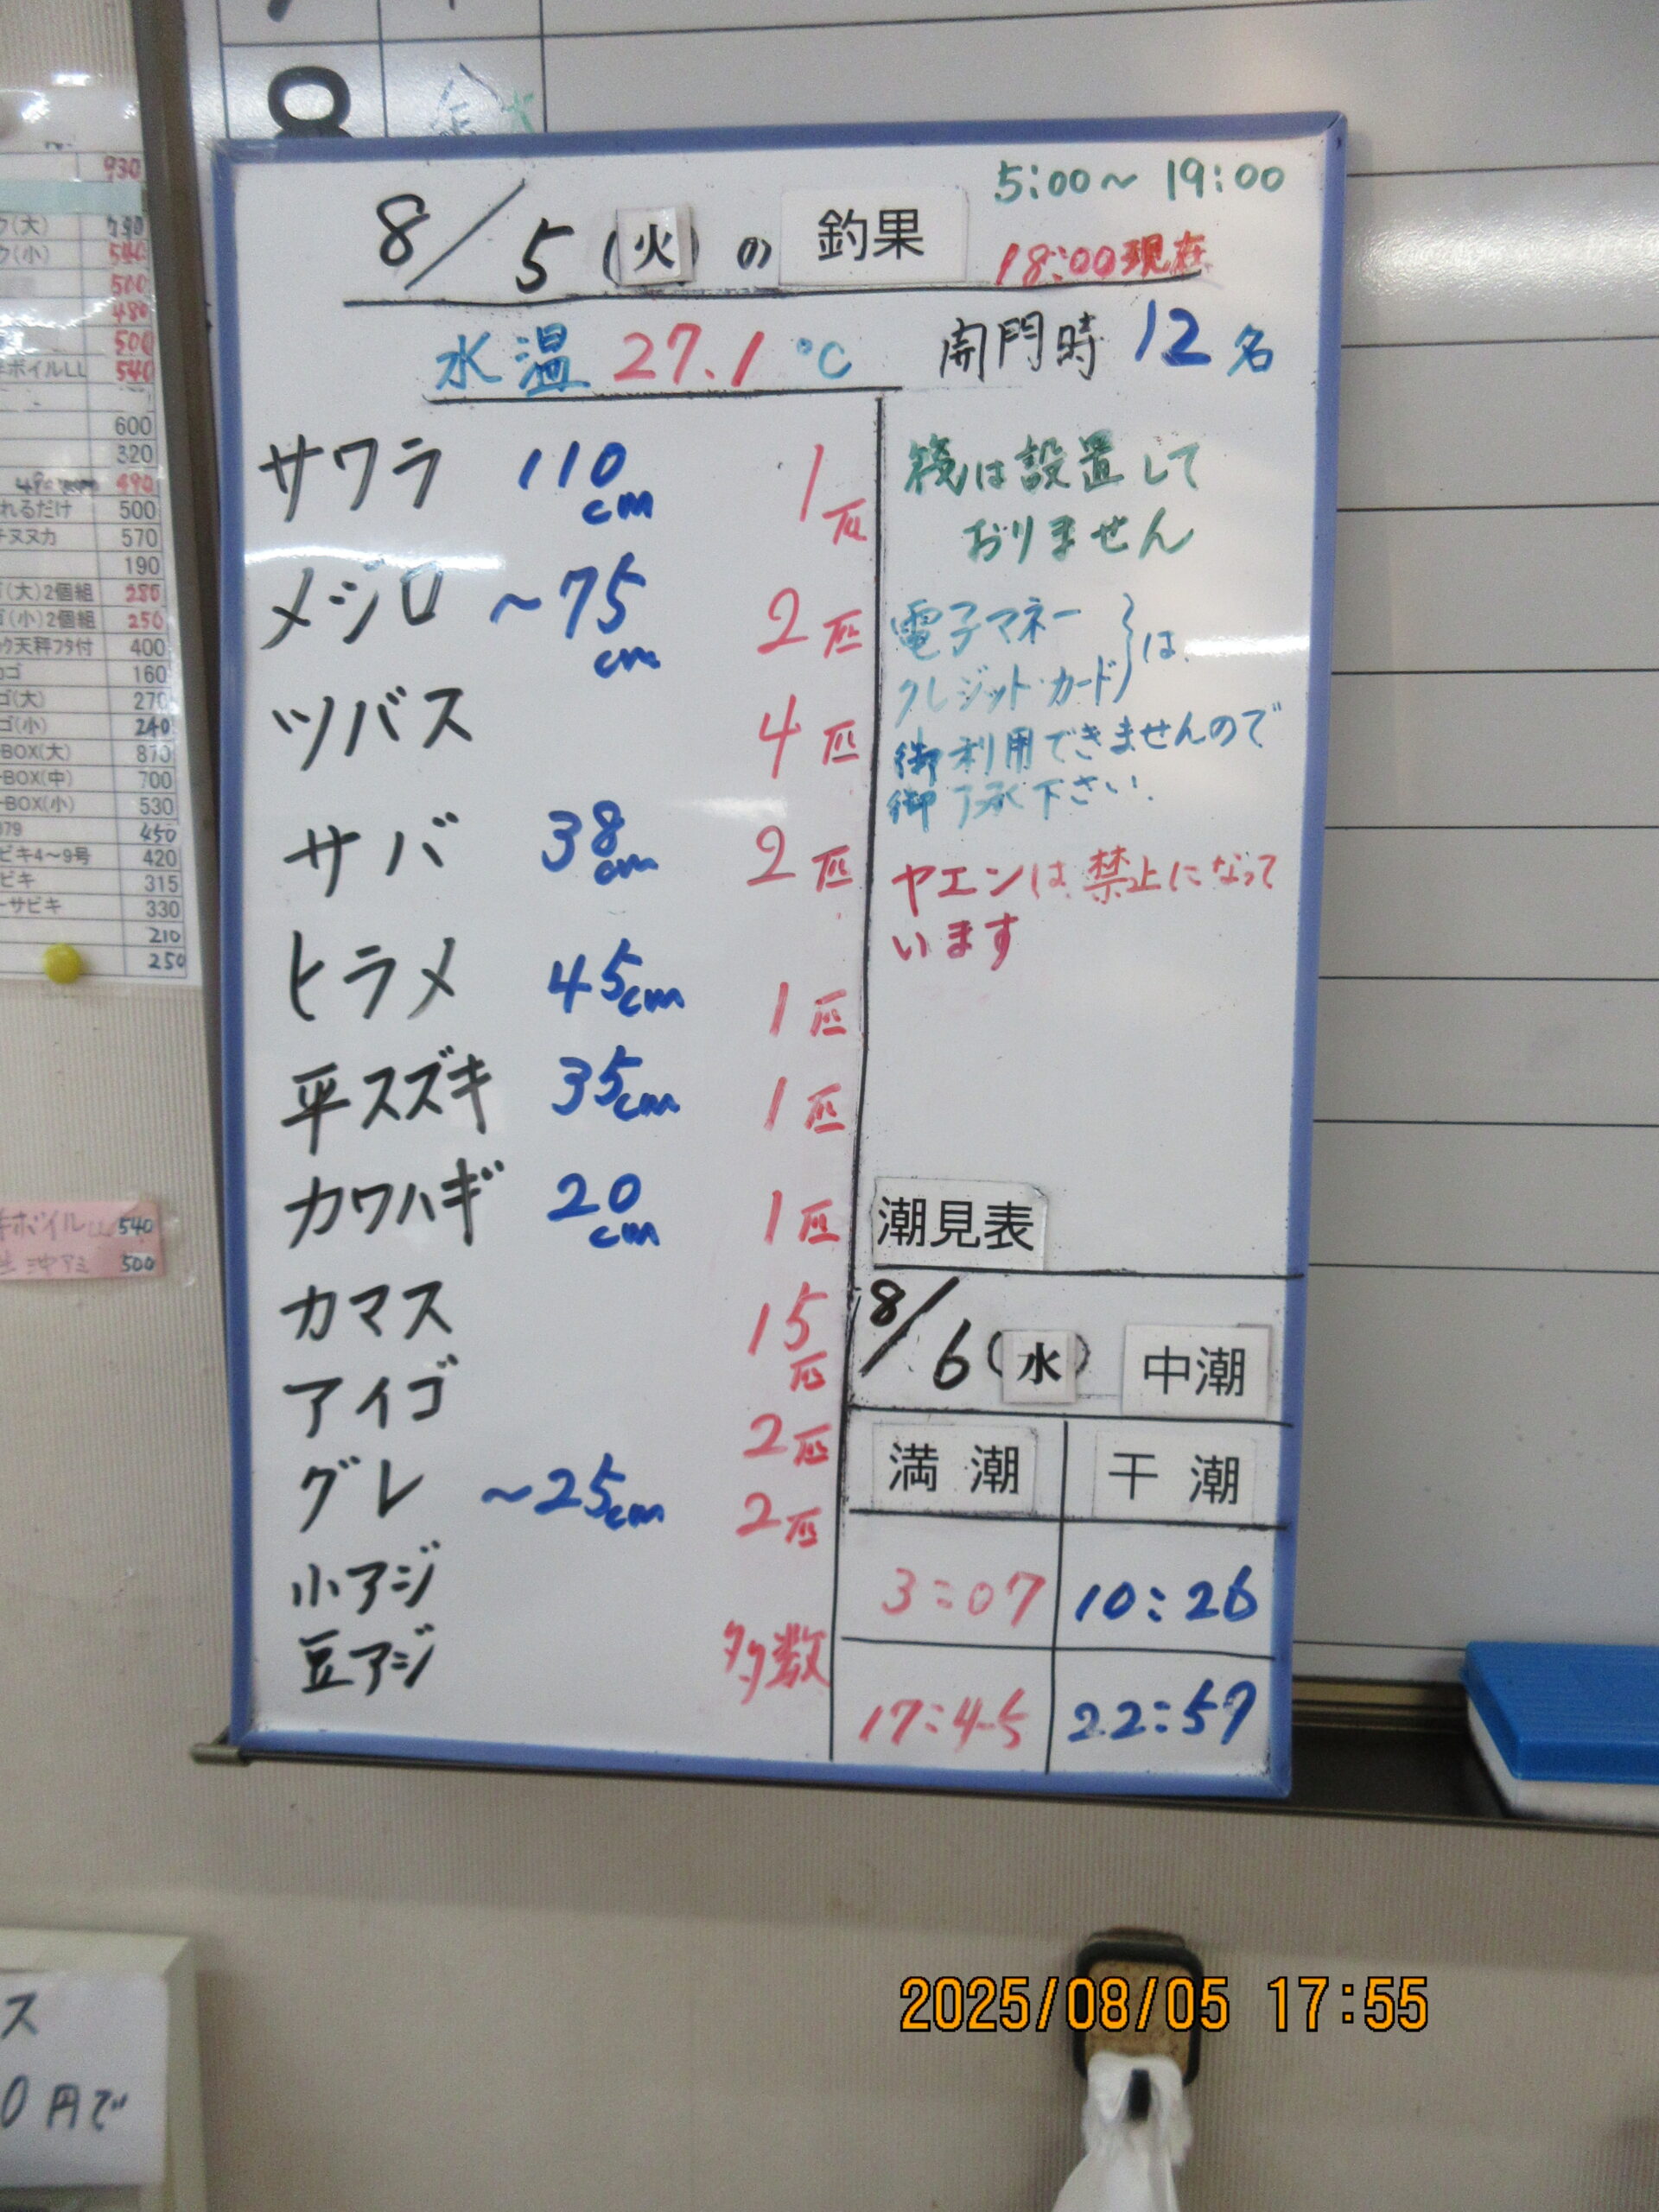 8/5(火)の釣果
5:00～19:00
18:00現在
水温 27.1℃
開門時 12名
サワラ 110cm 1匹
メジロ ～75cm 2匹
ツバス 4匹
サバ 38cm 2匹
ヒラメ 45cm 1匹
平スズキ 35cm 1匹
カワハギ 20cm 1匹
カマス 15匹
アイゴ 2匹
グレ ～25cm 2匹
小アジ
豆アジ 多数
筏は設置して
おりません
電子マネー
クレジット・カード}は
御利用できませんので
御了承下さい.
ヤエンは禁止になって
います
潮見表
8/6(水) 中潮
満潮 干潮
3:07 10:26
17:45 22:57
930
ク(大) 790
ク(小) 540
500
480
500
ボイルLL 540
600
320
490
れるだけ 500
チヌヌカ 570
190
(大)2個組 280
(小)2個組 250
ック天秤フタ付 400
カゴ 160
ゴ(大) 270
ゴ(小) 240
BOX(大) 870
BOX(中) 700
BOX(小) 530
079 450
ビキ4～9号 420
ビキ 315
ーサビキ 330
210
250
キボイルLL 540
生沖アミ 500
ス
0円で
2025/08/05 17:55